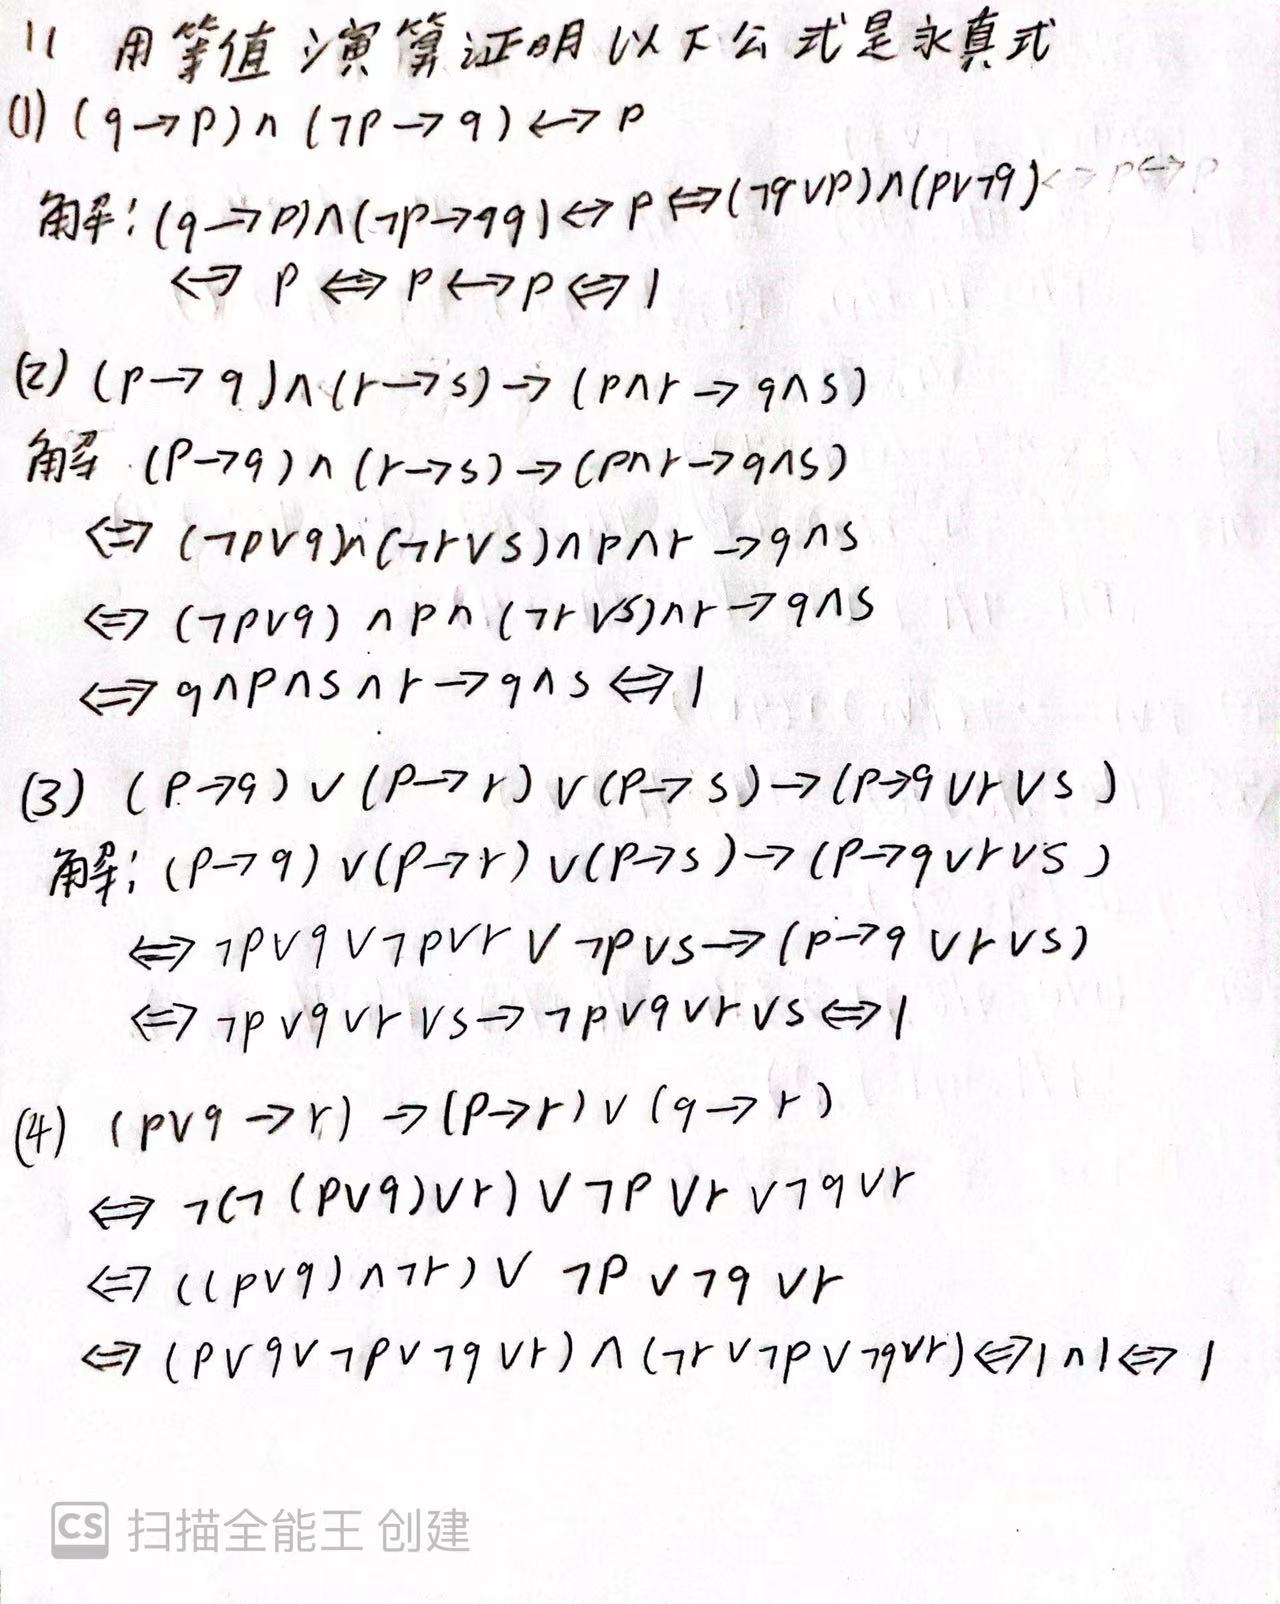 11 用等值演算证明以下公式是永真式
(1) (q→p)∧(¬p→q)↔p
解: (q→p)∧(¬p→qq)↔p⇔(¬q∨p)∧(p∨¬q)↔p↔p
⇔p⇔p↔p⇔1
(2) (p→q)∧(r→s)→(p∧r→q∧s)
解 (p→q)∧(r→s)→(p∧r→q∧s)
⇔(¬p∨q)∧(¬r∨s)∧p∧r→q∧s
⇔(¬p∨q)∧p∧(¬r∨s)∧r→q∧s
⇔q∧p∧s∧r→q∧s⇔1
(3) (p→q)∨(p→r)∨(p→s)→(p→q∨r∨s)
解: (p→q)∨(p→r)∨(p→s)→(p→q∨r∨s)
⇔¬p∨q∨¬p∨r∨¬p∨s→(p→q∨r∨s)
⇔¬p∨q∨r∨s→¬p∨q∨r∨s⇔1
(4) (p∨q→r)→(p→r)∨(q→r)
⇔¬(¬(p∨q)∨r)∨¬p∨r∨¬q∨r
⇔((p∨q)∧¬r)∨¬p∨¬q∨r
⇔(p∨q∨¬p∨¬q∨r)∧(¬r∨¬p∨¬q∨r)⇔1∧1⇔1
CS 扫描全能王 创建